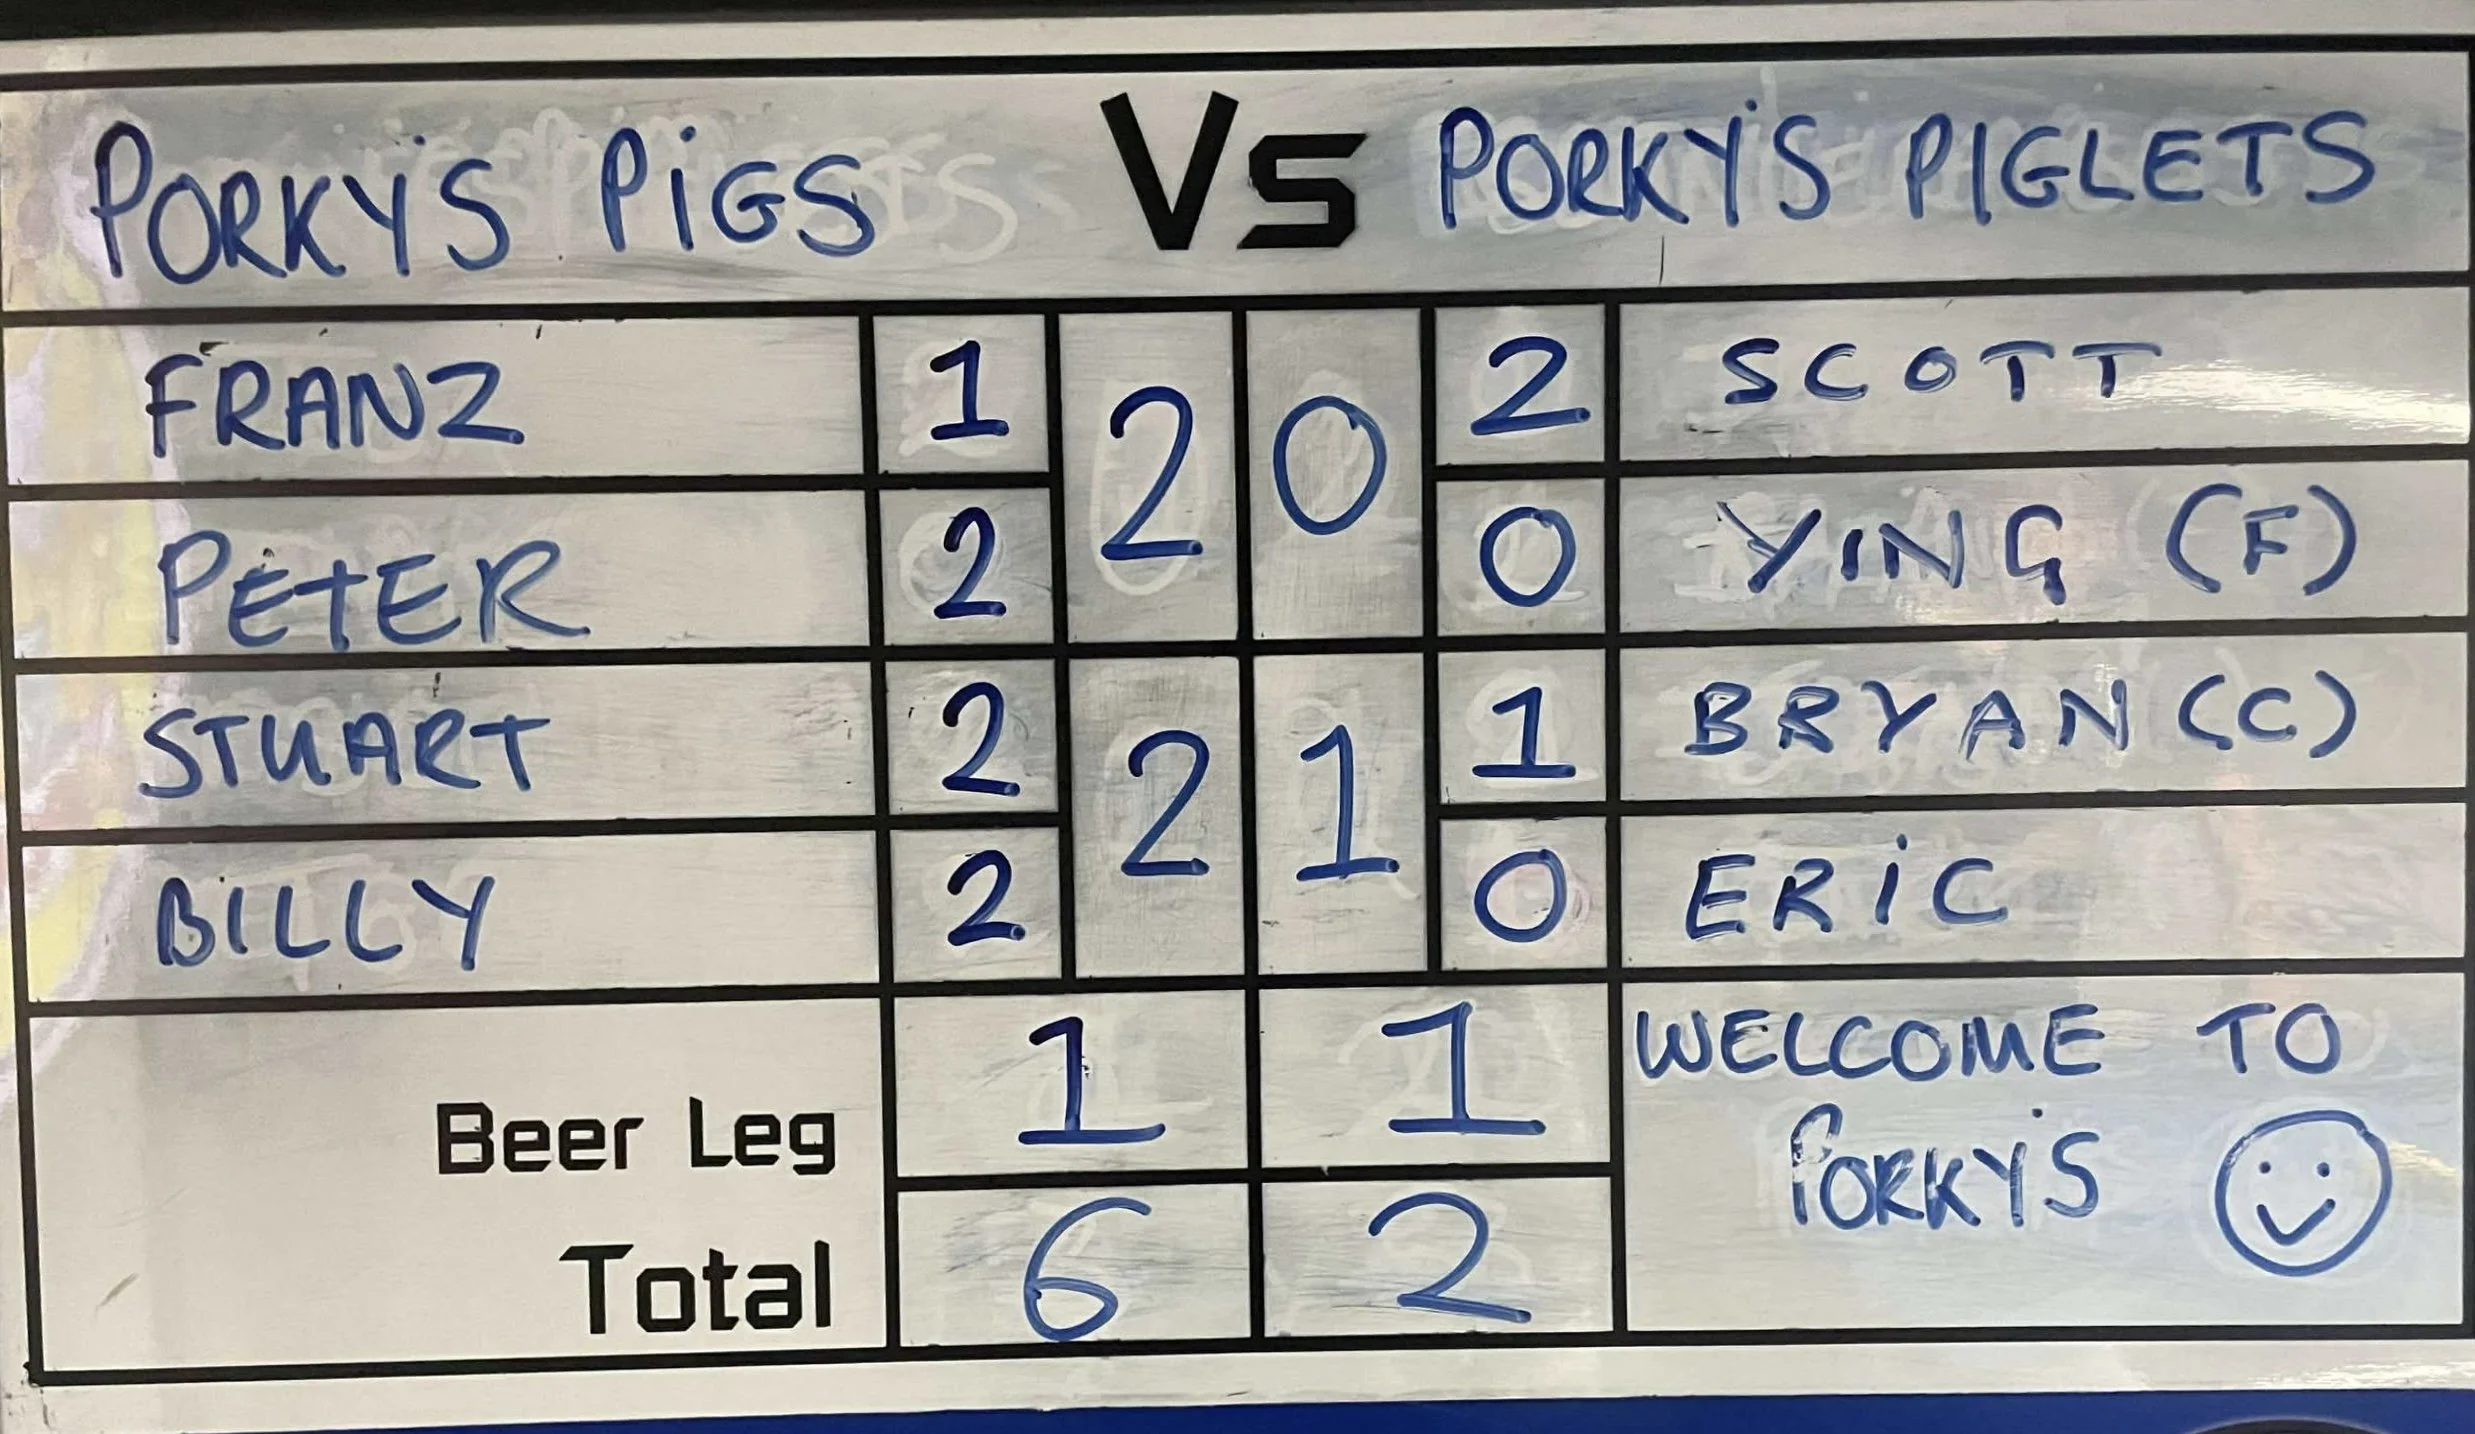 PORKY'S PIGS Vs PORKY'S PIGLETS
FRANZ 1 2 0 2 SCOTT
PETER 2 0 YING (F)
STUART 2 2 1 1 BRYAN (C)
BILLY 2 0 ERIC
Beer Leg 1 1 WELCOME TO
PORKY'S
Total 6 2